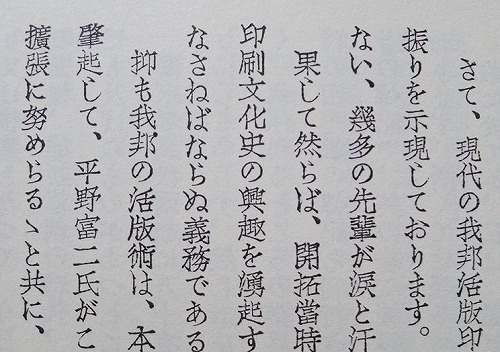 さて、現代の我邦活版印
振りを示現しております。
ない、幾多の先輩が涙と汗
果して然らば、開拓當時
印刷文化史の興趣を湧起す
なさねばならぬ義務である
抑も我邦の活版術は、本
肇起して、平野富二氏がこ
擴張に努めらるゝと共に、